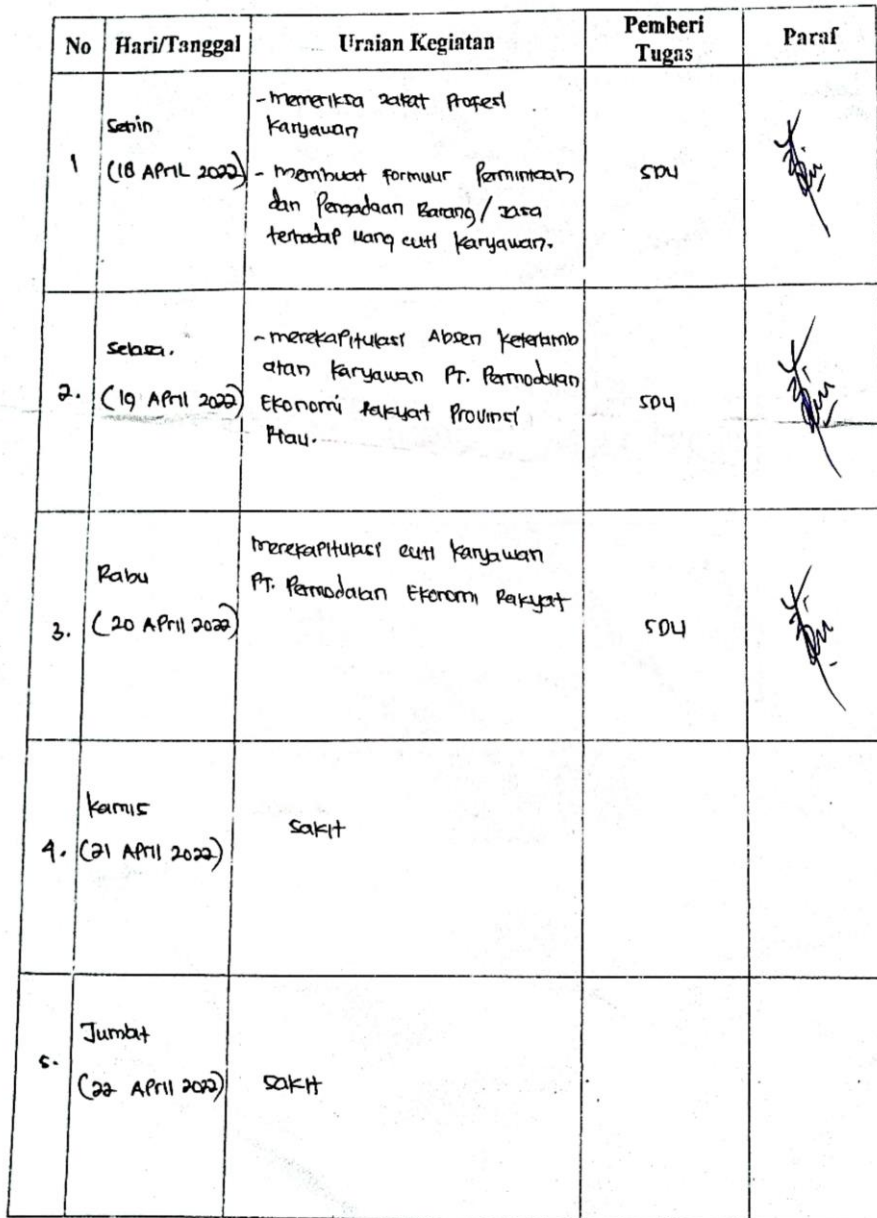 No Hari/Tanggal Uraian Kegiatan Pemberi Tugas Paraf
1 Senin
(18 APRIL 2022)
- memeriksa zakat Profesi
karyawan
- membuat formulir Permintaan
dan Pengadaan Barang/Jasa
terhadap uang cuti karyawan.
SDM
2. Selasa.
(19 April 2022)
- merekapitulasi Absen keterlamb
atan karyawan PT. Permodalan
Ekonomi Rakyat Provinsi
Riau.
SDM
3. Rabu
(20 April 2022)
merekapitulasi cuti karyawan
PT. Permodalan Ekonomi Rakyat
SDM
4. Kamis
(21 April 2022)
Sakit
5. Jumbat
(22 April 2022)
Sakit